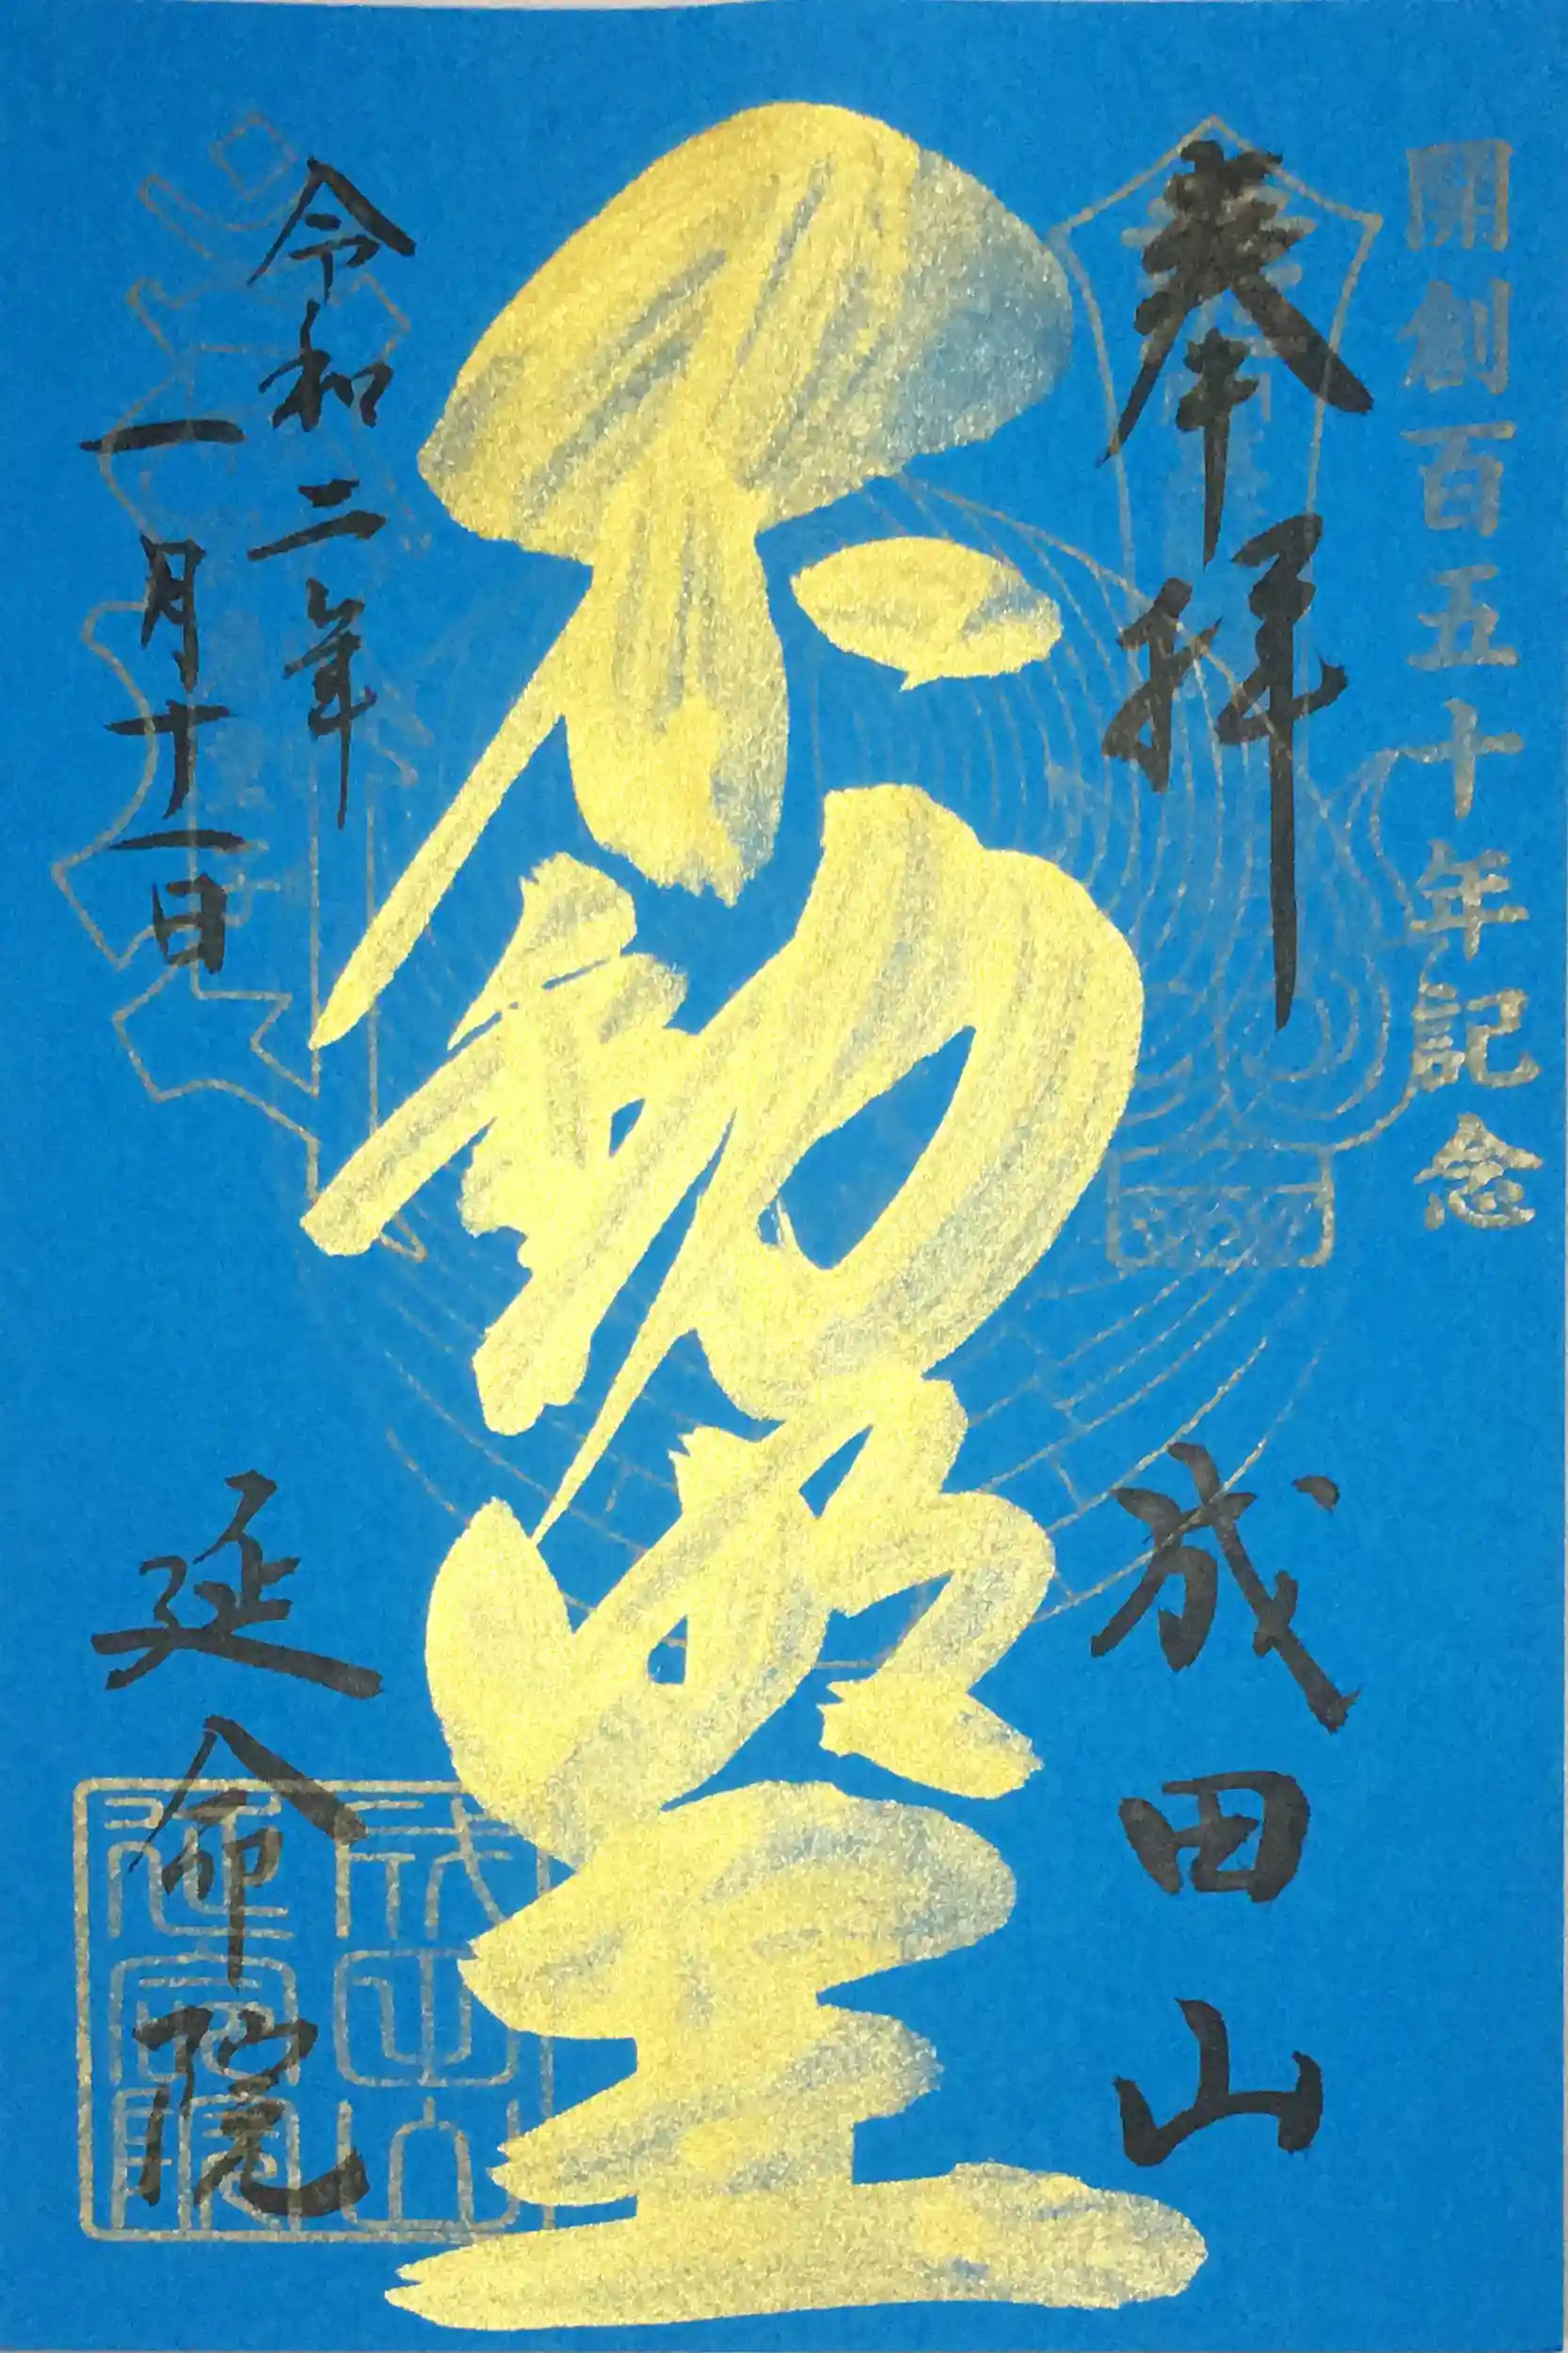 開創百五十年記念
奉拝
成田山
不動明王
令和二年
一月十一日
延命院